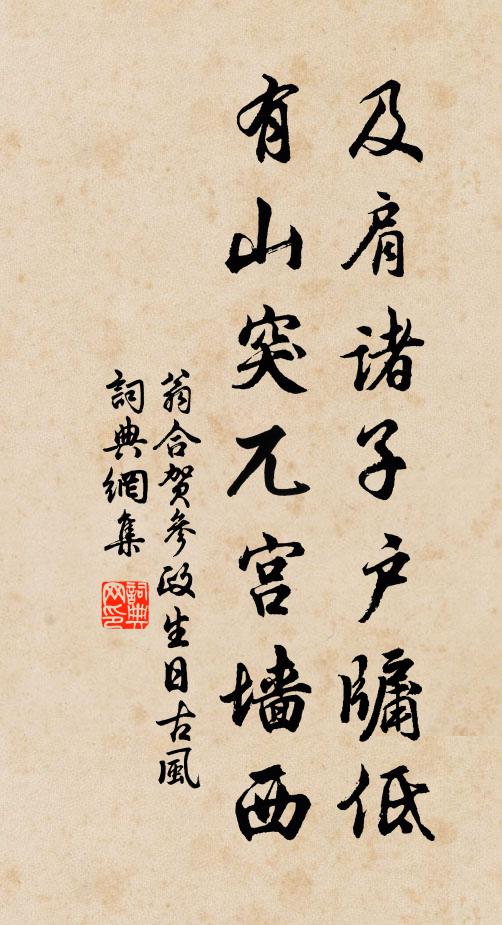 及肩诸子户牖低
有山突兀宫墙西
翁合贺參政生日古風
詞典網集
詞典
网印